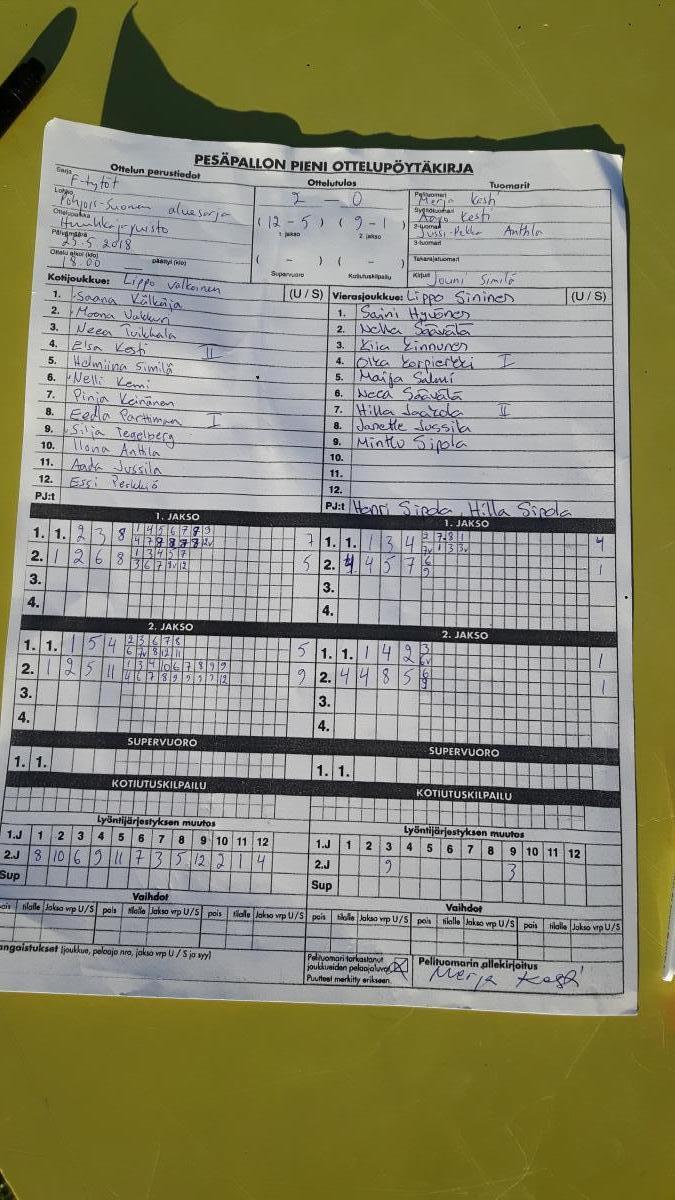 PESÄPALLON PIENI OTTELUPÖYTÄKIRJA
Ottelun perustiedot
Ottelutulos
Tuomarit
Sarja F-tytöt
Lohko Pohjois-Suomen aluesarja
Ottelupaikka
Päivämäärä 25.5 2018
Ottelu alkoi (klo) 18.00 päättyi (klo)
2 – 0
( 12 – 5 ) ( 9 – 1 )
1. jakso 2. jakso
( – ) ( – )
Supervuoro Kotiutuskilpailu
Pelituomari Merja Kesti
Syöttötuomari Kesti
2-tuomari Jussi-Pekka Anttila
3-tuomari
Takarajatuomari
Kirjuri Jouni Similä
Kotijoukkue: Lippo Valkoinen (U / S)
1. Saana Källäjä
2. Moona Vakkuri
3. Neea Tuikkala
4. Elsa Kesti II
5. Helmiina Similä
6. Nelli Kemi
7. Pinja Keinänen
8. Eedla Parttimaa I
9. Silja Fegelberg
10. Ilona Anttila
11. Aada Jussila
12. Essi Perkkiö
PJ:t
Vierasjoukkue: Lippo Sininen (U / S)
1. Saini Hyvönen
2. Nella Säävälä
3. Kiia Kinnunen
4. I
5. Maija Salmi
6. Neea Säävälä
7. Hilla Jaakola II
8. Janette Jussila
9. Minttu Sipola
10.
11.
12.
PJ:t Henri Sipola, Hilla Sipola
1. JAKSO
1. 1. 2 3 8 7
2. 1 2 6 8 1 3 4 5 7 5
3 6 7 8v 12
3.
4.
1. JAKSO
1. 1. 1 3 4 2 7 8 1 4
7v 1 3 3v
2. 4 4 5 7 6 1
9
3.
4.
2. JAKSO
1. 1. 1 5 4 2 3 6 7 8 5
6 7v 8 12 11
2. 1 2 5 11 1 3 4 10 6 7 8 9 9 9
4 6 7 8 9 9 9 9 12
3.
4.
2. JAKSO
1. 1. 1 4 2 3 1
6v
2. 4 4 8 5 6 1
9
3.
4.
SUPERVUORO
1. 1.
SUPERVUORO
1. 1.
KOTIUTUSKILPAILU
KOTIUTUSKILPAILU
Lyöntijärjestyksen muutos
1.J 1 2 3 4 5 6 7 8 9 10 11 12
2.J 8 10 6 9 11 7 3 5 12 2 1 4
Sup
Lyöntijärjestyksen muutos
1.J 1 2 3 4 5 6 7 8 9 10 11 12
2.J 9 3
Sup
Vaihdot
pois tilalle Jakso vrp U/S pois tilalle Jakso vrp U/S pois tilalle Jakso vrp U/S
Vaihdot
pois tilalle Jakso vrp U/S pois tilalle Jakso vrp U/S pois tilalle Jakso vrp U/S
angaistukset (joukkue, pelaaja nro, jakso vrp U / S ja syy)
Pelituomari tarkastanut
joukkueiden pelaajaluvat
Puutteet merkitty erikseen.
Pelituomarin allekirjoitus
Merja Kesti